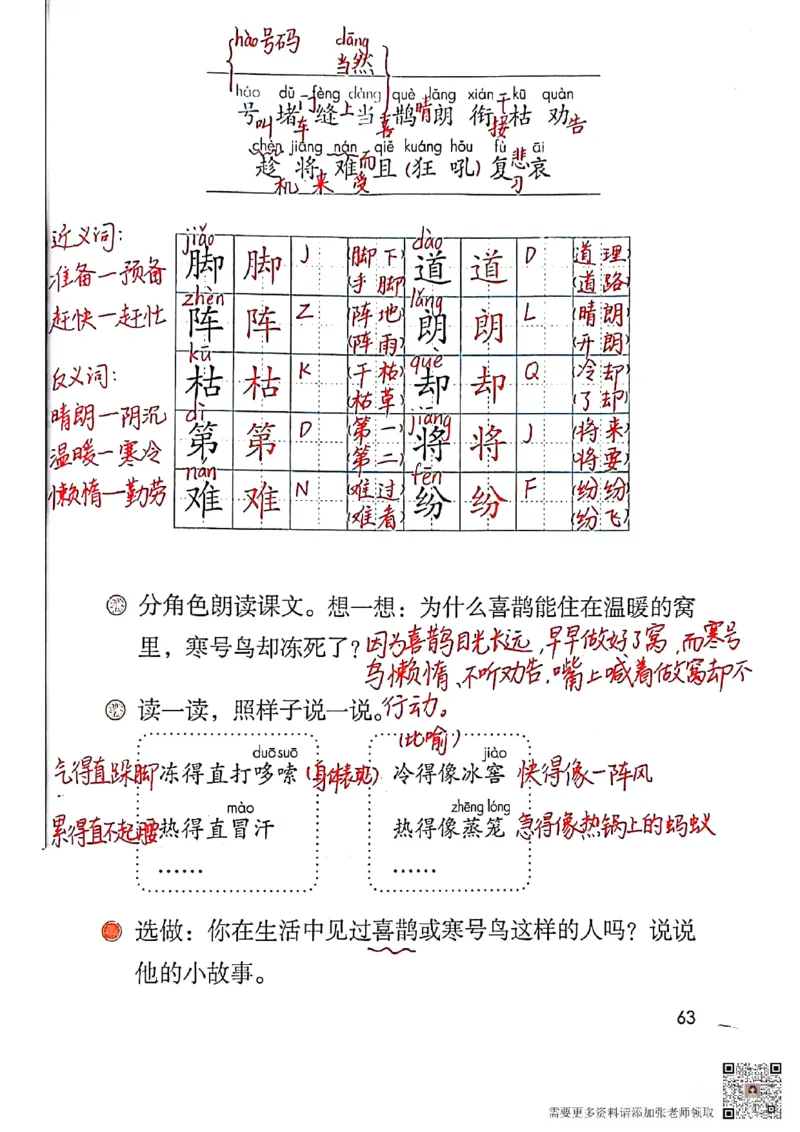 hào号码 dāng当然
háo dǔ fèng dàng què lǎng xián kū quàn
号叫 堵车 门缝 上当 喜鹊 晴朗 衔接 干枯 劝告
chèn jiāng nán qiě kuáng hǒu fù āi
趁机 将来 难受 而且 (狂吼) 复习 悲哀
近义词:
准备—预备
赶快—赶忙
反义词:
晴朗—阴沉
温暖—寒冷
懒惰—勤劳
jiǎo 脚 脚 J (脚下) (手脚) dào 道 道 D (道理) (道路)
zhèn 阵 阵 Z (阵地) (阵雨) lǎng 朗 朗 L (晴朗) (开朗)
kū 枯 枯 K (干枯) (枯草) què 却 却 Q (冷却) (了却)
dì 第 第 D (第一) (第二) jiāng 将 将 J (将来) (将要)
nán 难 难 N (难过) (难者) fēn 纷 纷 F (纷纷) (纷飞)
分角色朗读课文。想一想：为什么喜鹊能住在温暖的窝
里，寒号鸟却冻死了？因为喜鹊目光长远，早早做好了窝，而寒号
鸟懒惰、不听劝告，嘴上喊着做窝却不
读一读，照样子说一说。行动。
(比喻)
duō suō jiào
气得直跺脚 冻得直打哆嗦 (身体表现) 冷得像冰窖 快得像一阵风
mào zhēng lóng
累得直不起腰 热得直冒汗 热得像蒸笼 急得像热锅上的蚂蚁
…… ……
选做：你在生活中见过喜鹊或寒号鸟这样的人吗？说说
他的小故事。
63
需要更多资料请添加张老师领取